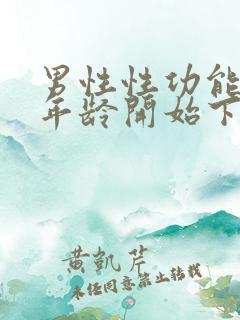 男性性功能
年龄開始下
黄凱芹
未任同意禁止转载